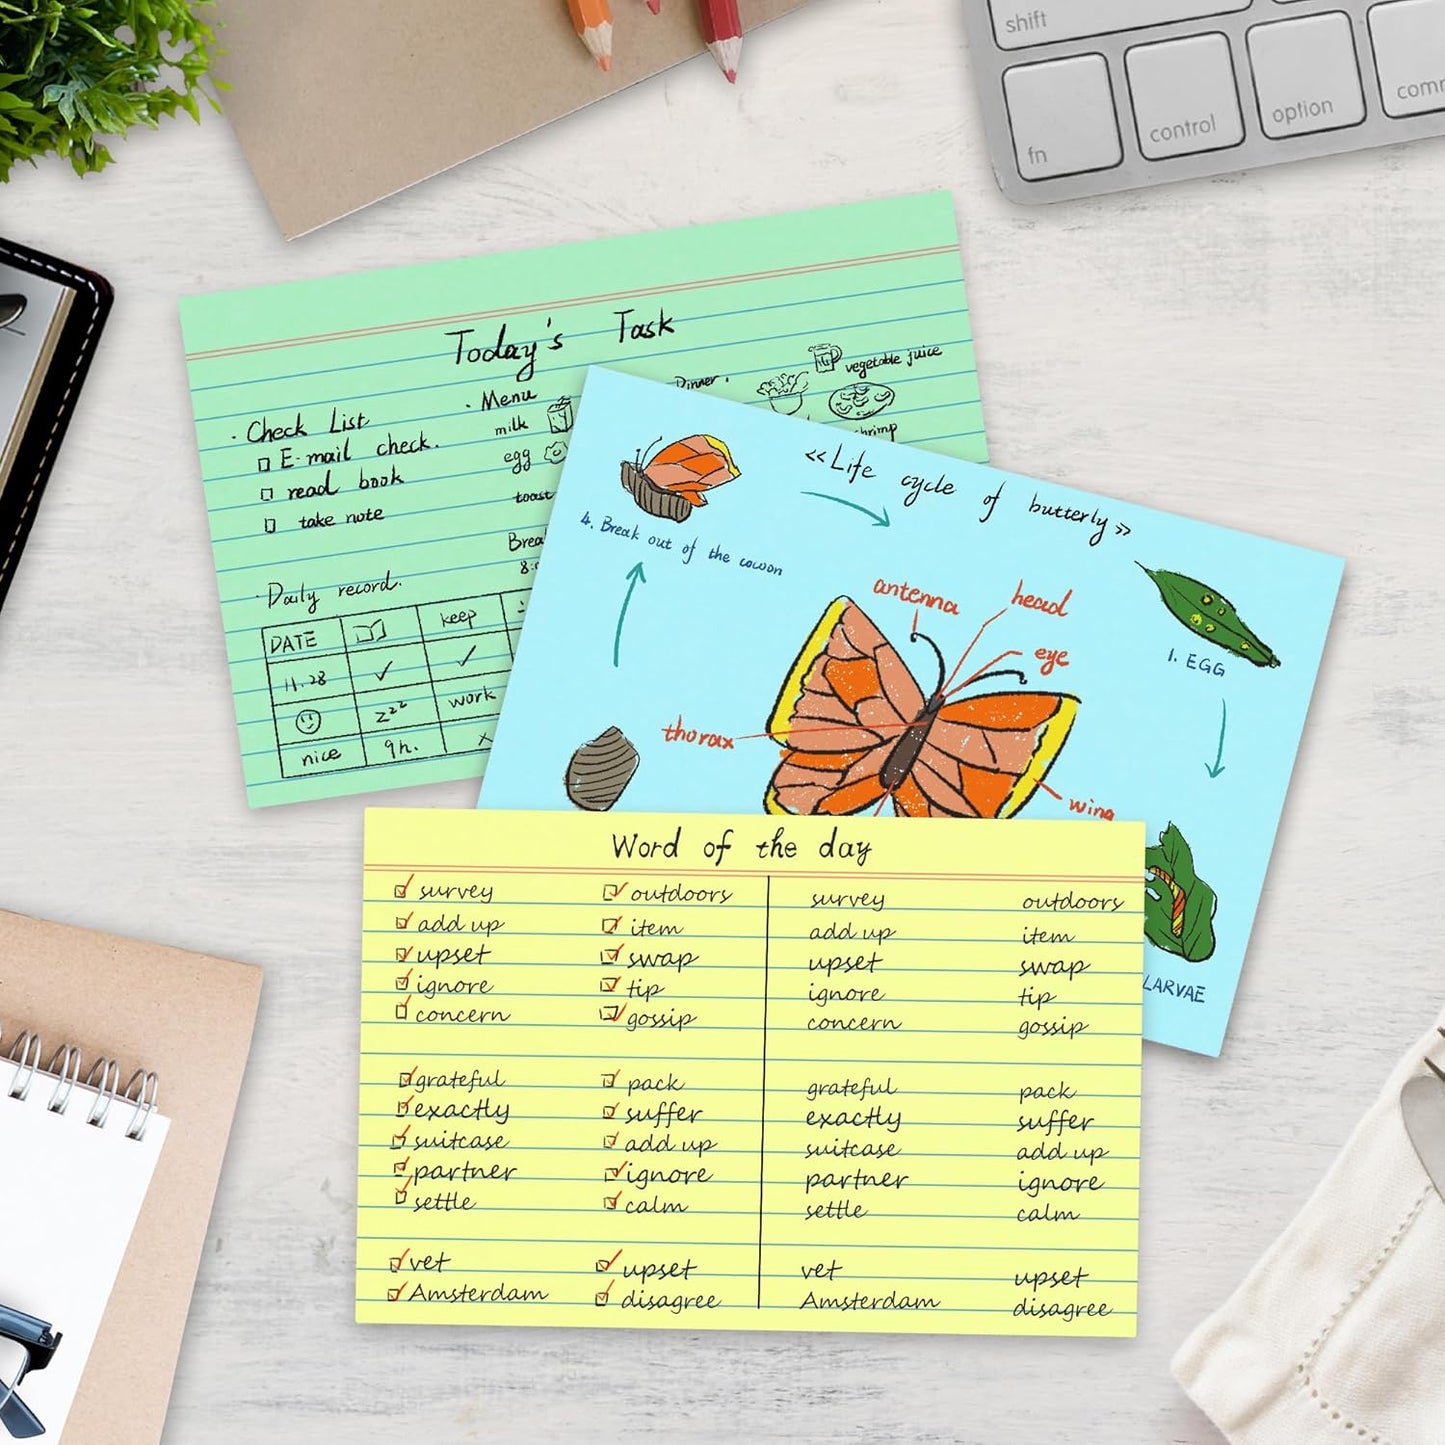 shift
fn control option
Today's Task
· Check List
E-mail check.
read book
take note
· Menu
milk
egg
toast
Dinner.
vegetable juice
· Daily record.
DATE keep
11.28 ✓ ✓
zzz work
nice 9h. x
«Life cycle of butterly»
4. Break out of the cocoon
antenna
head
eye
thorax
wing
1. EGG
LARVAE
Word of the day
survey outdoors survey outdoors
add up item add up item
upset swap upset swap
ignore tip ignore tip
concern gossip concern gossip
grateful pack grateful pack
exactly suffer exactly suffer
suitcase add up suitcase add up
partner ignore partner ignore
settle calm settle calm
vet upset vet upset
Amsterdam disagree Amsterdam disagree